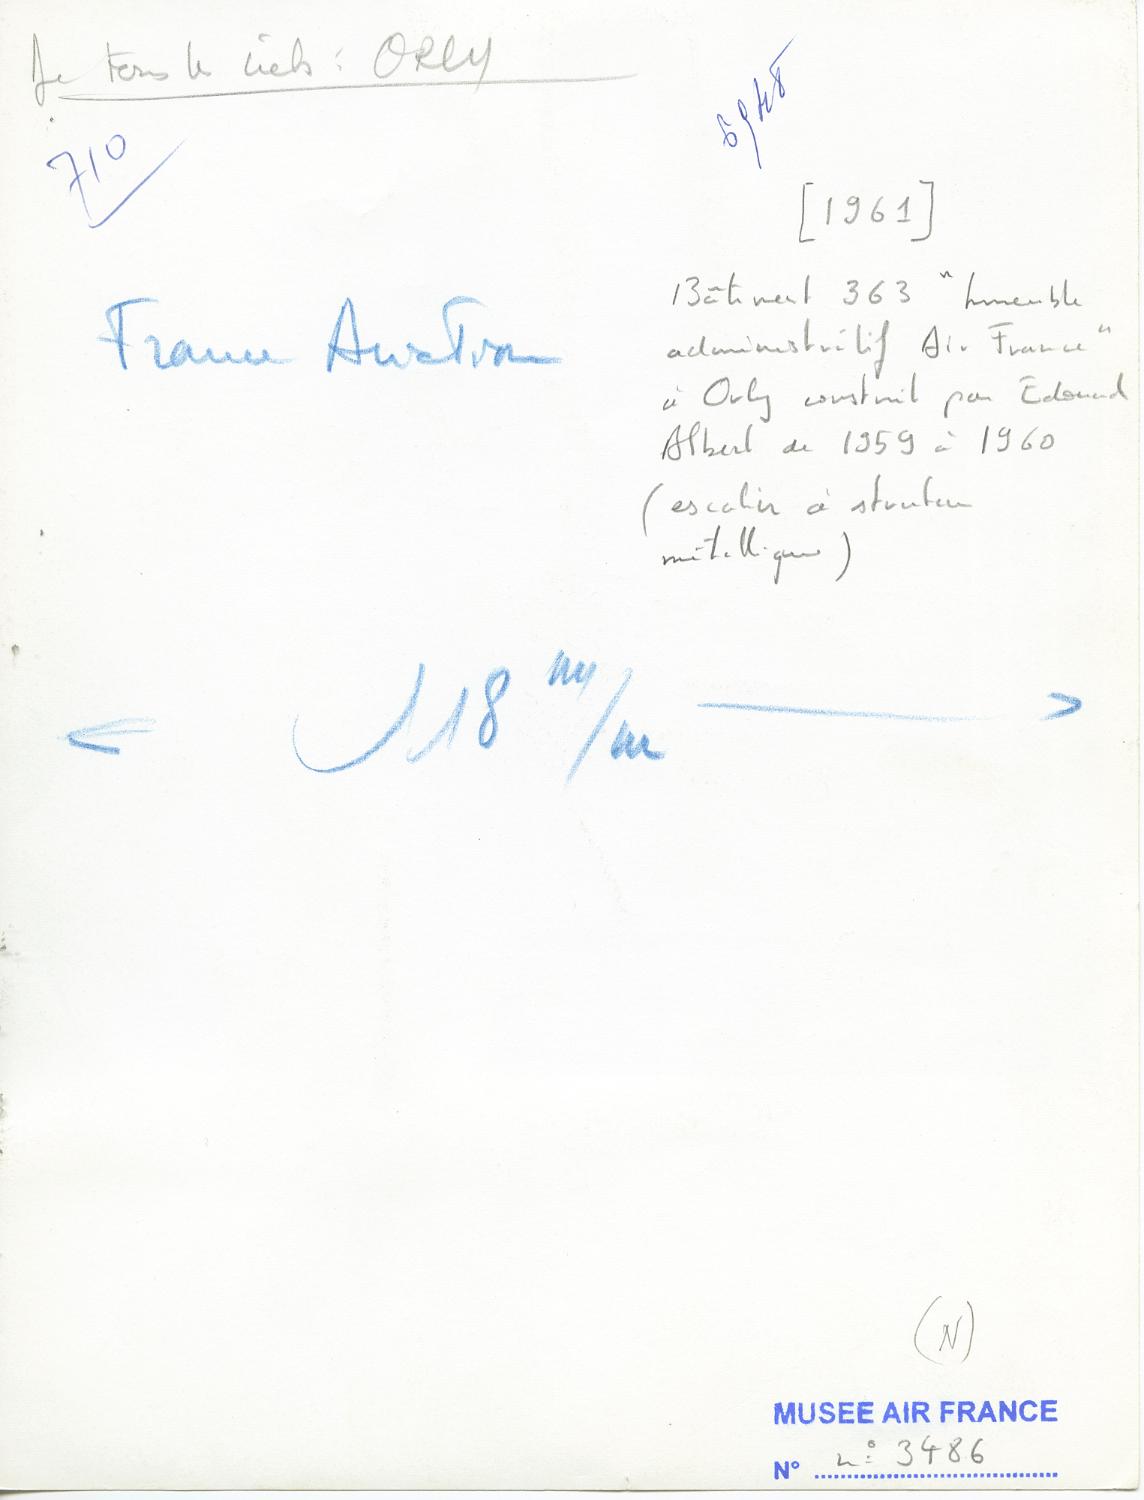 De tous les ciels : ORLY
710
[1961]
Bâtiment 363 "Immeuble
administratif Air France"
à Orly construit par Edouard
Albert de 1959 à 1960
(escalier à structure
métallique)
France Aviation
118 m/m
(N)
MUSEE AIR FRANCE
N° n° 3486